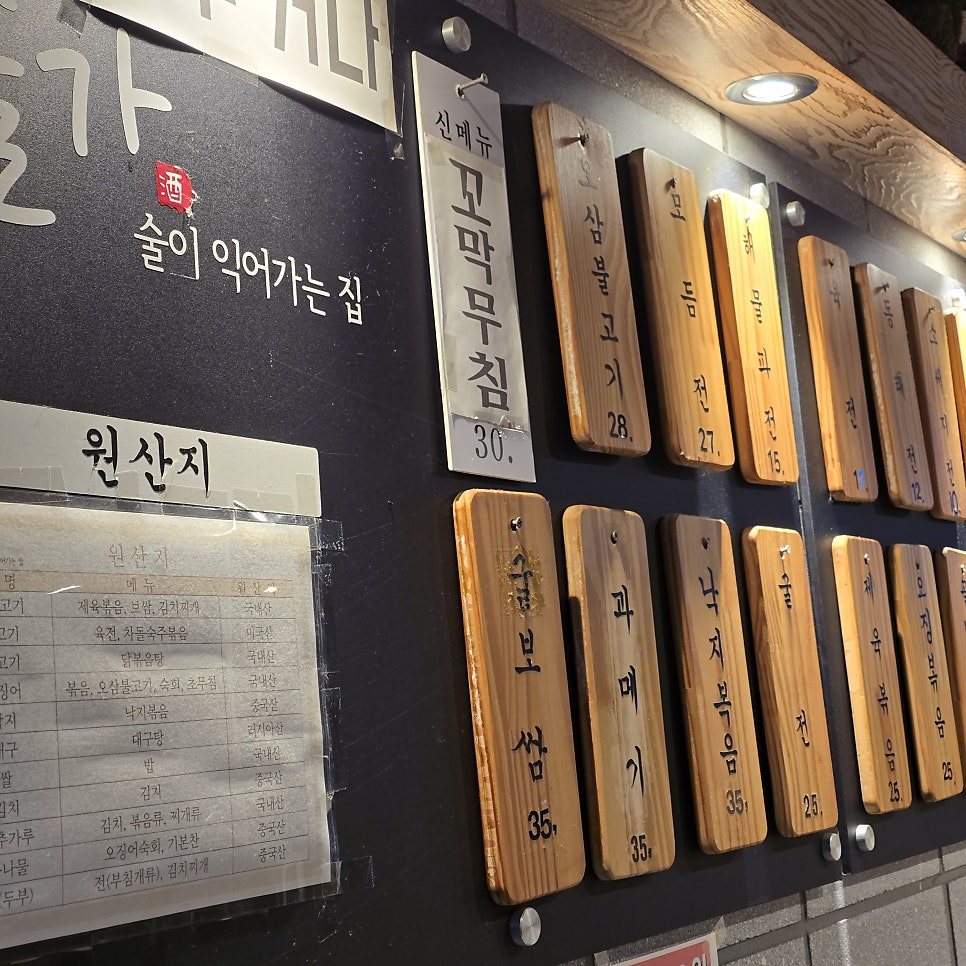 가
酒
술이 익어가는 집
신메뉴
꼬막무침
30.
오삼불고기
28.
모듬전
27.
해물파전
15.
육전
동래전
12.
굴보쌈
35,
과메기
35,
낙지볶음
35,
굴전
25.
제육볶음
25.
오징볶음
25.
원산지
원산지
명 메뉴 원산
고기 제육볶음, 보쌈, 김치찌개 국내산
고기 육전, 차돌숙주볶음 미국산
고기 닭볶음탕 국내산
징어 볶음, 오삼불고기, 숙회, 초무침 국내산
낙지볶음 중국산
대구탕 러시아산
쌀 밥 국내산
김치 김치 중국산
추가루 김치, 볶음류, 찌개류 국내산
나물 오징어숙회, 기본찬 중국산
(두부) 전(부침개류), 김치찌개 중국산